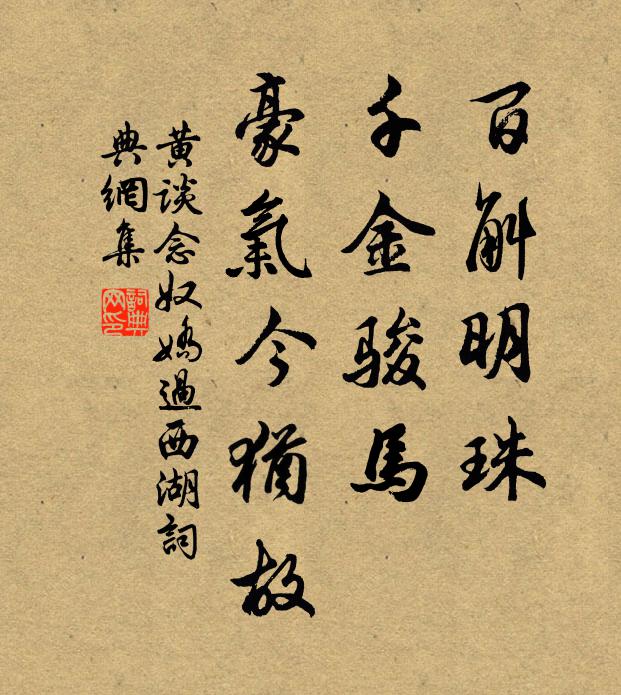 百斛明珠
千金骏馬
豪氣今猶故
黄谈念奴嬌過西湖詞
典網集
詞典
网印